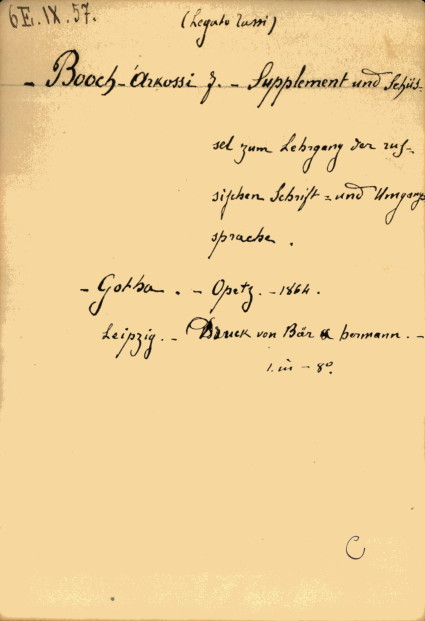 6 E. IX. 57.
(Legato Tassi)
- Booch-Árkossi F. - Supplement und Schüs-
sel zum Lehrgang der rus-
sischen Schrift = und Umgangs
sprache.
- Gotha. - Opetz. - 1864.
Leipzig. - Druck von Bär & hermann. -
1. in - 8º.
C